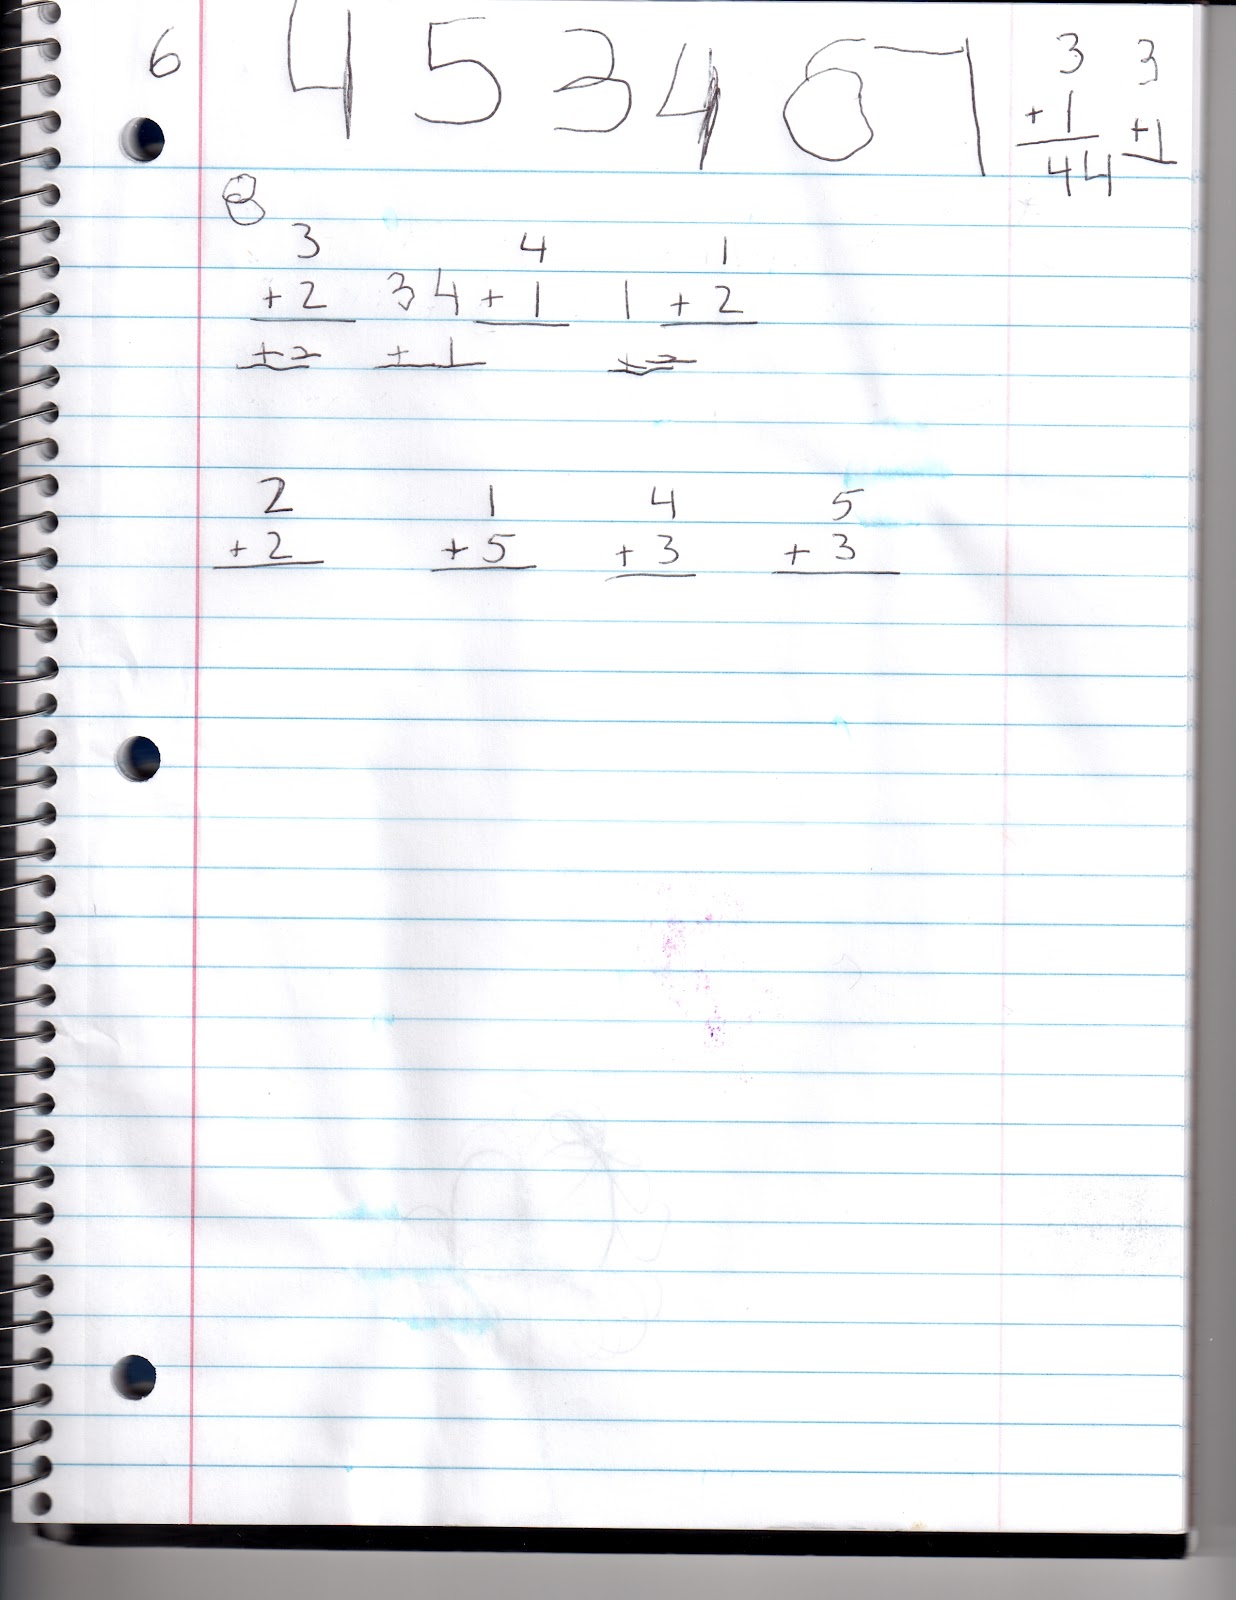 6 4 5 3 4 6 7 3 3
+ 1 + 1
4 4
8
3 4 1
+ 2 3 4 + 1 1 + 2
+ 2 + 1 + 2
2 1 4 5
+ 2 + 5 + 3 + 3